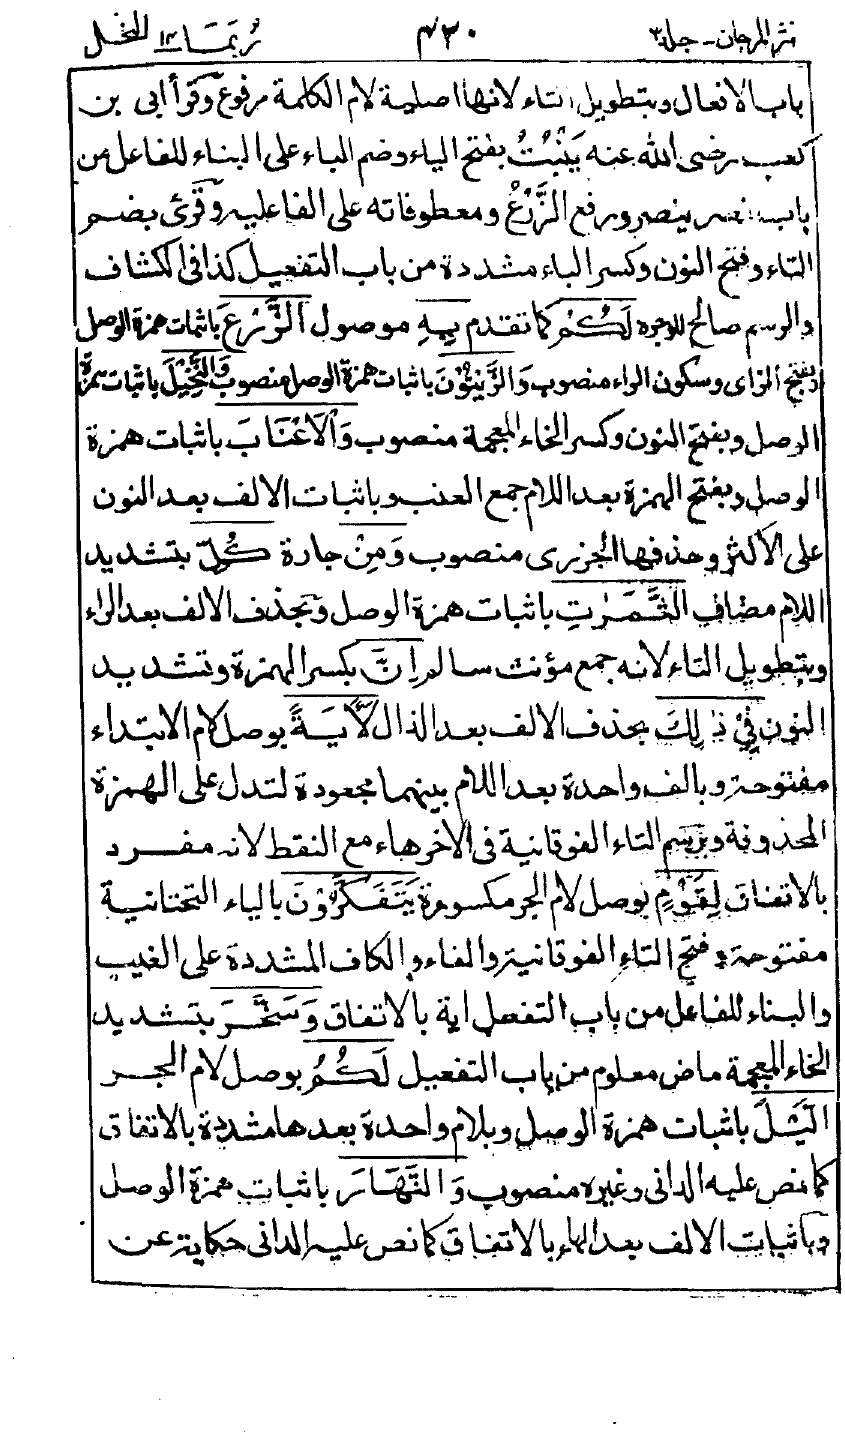 نثر المرجان - جلد ٣
٤٣٠
ربما ١٤ النحل
باب الافعال وبتطويل التاء لانها اصلية لام الكلمة مرفوع وقرأ أبى بن
كعب رضى الله عنه يَنْبُتُ بفتح الياء وضم الباء على البناء للفاعل من
باب نصر ينصر ورفع الزَّرْعُ ومعطوفاته على الفاعلية وقرئ بضم
التاء وفتح النون وكسر الباء مشددة من باب التفعيل كذا فى الكشاف
والرسم صالح للوجوه لَكُمْ كما تقدم بِهِ موصول الزَّرْعَ باثبات همزة الوصل
وبفتح الزاى وسكون الراء منصوب وَالزَّيْتُوْنَ باثبات همزة الوصل منصوب وَالنَّخِيْلَ باثبات همزة
الوصل وبفتح النون وكسر الخاء المعجمة منصوب وَالْاَعْنَابَ باثبات همزة
الوصل وبفتح الهمزة بعد اللام جمع العنب وباثبات الالف بعد النون
على الاكثر وحذفها الجزرى منصوب وَمِنْ جارة كُلِّ بتشديد
اللام مضاف الثَّمَرٰتِ باثبات همزة الوصل وبحذف الالف بعد الراء
وبتطويل التاء لانه جمع مؤنث سالم اِنَّ بكسر الهمزة وتشديد
النون فِيْ ذٰلِكَ بحذف الالف بعد الذال لَاٰيَةً بوصل لام الابتداء
مفتوحة وبالف واحدة بعد اللام بينهما مجعودة لتدل على الهمزة
المحذوفة وبرسم التاء الفوقانية فى الاخر هاء مع النقط لانه مفرد
بالاتفاق لِقَوْمٍ بوصل لام الجر مكسورة يَتَفَكَّرُوْنَ بالياء التحتانية
مفتوحة وفتح التاء الفوقانية والفاء والكاف المشددة على الغيب
والبناء للفاعل من باب التفعل اية بالاتفاق وَسَخَّرَ بتشديد
الخاء المعجمة ماض معلوم من باب التفعيل لَكُمُ بوصل لام الجر
الَّيْلَ باثبات همزة الوصل وبلام واحدة بعدها مشددة بالاتفاق
كما نص عليه الدانى وغيره منصوب وَالنَّهَارَ باثبات همزة الوصل
وباثبات الالف بعد الهاء بالاتفاق كما نص عليه الدانى حكاية عن